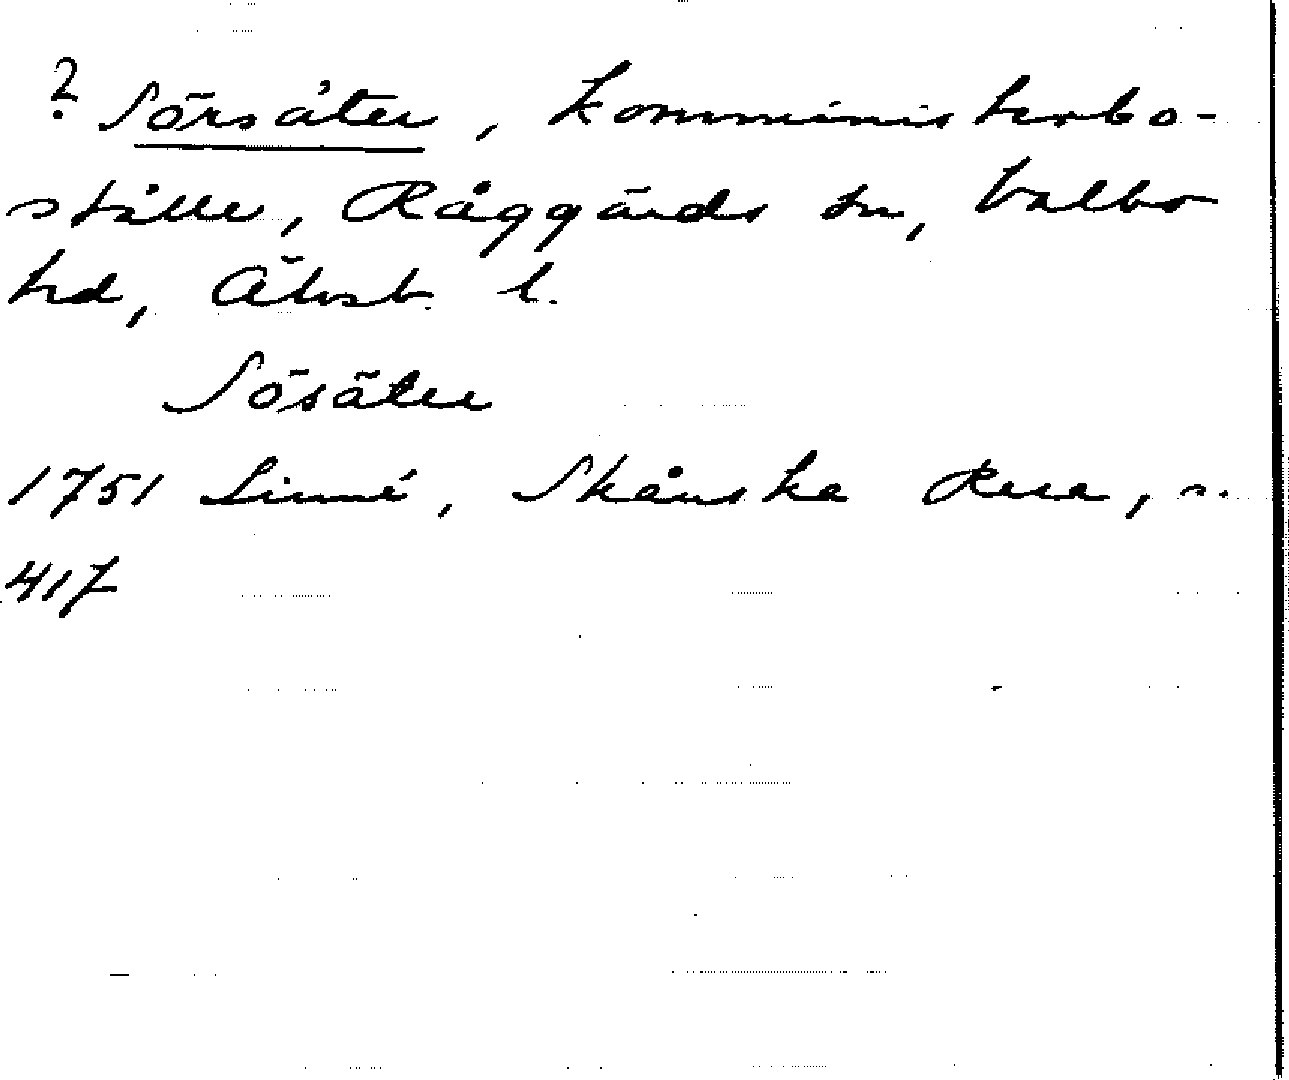 ? Sörsäter, komministerbo-
ställe, Råggärds sn, Valbo
hd, Älvsb. l.
Sösäter
1751 Linné, Skånska Resa, s.
417